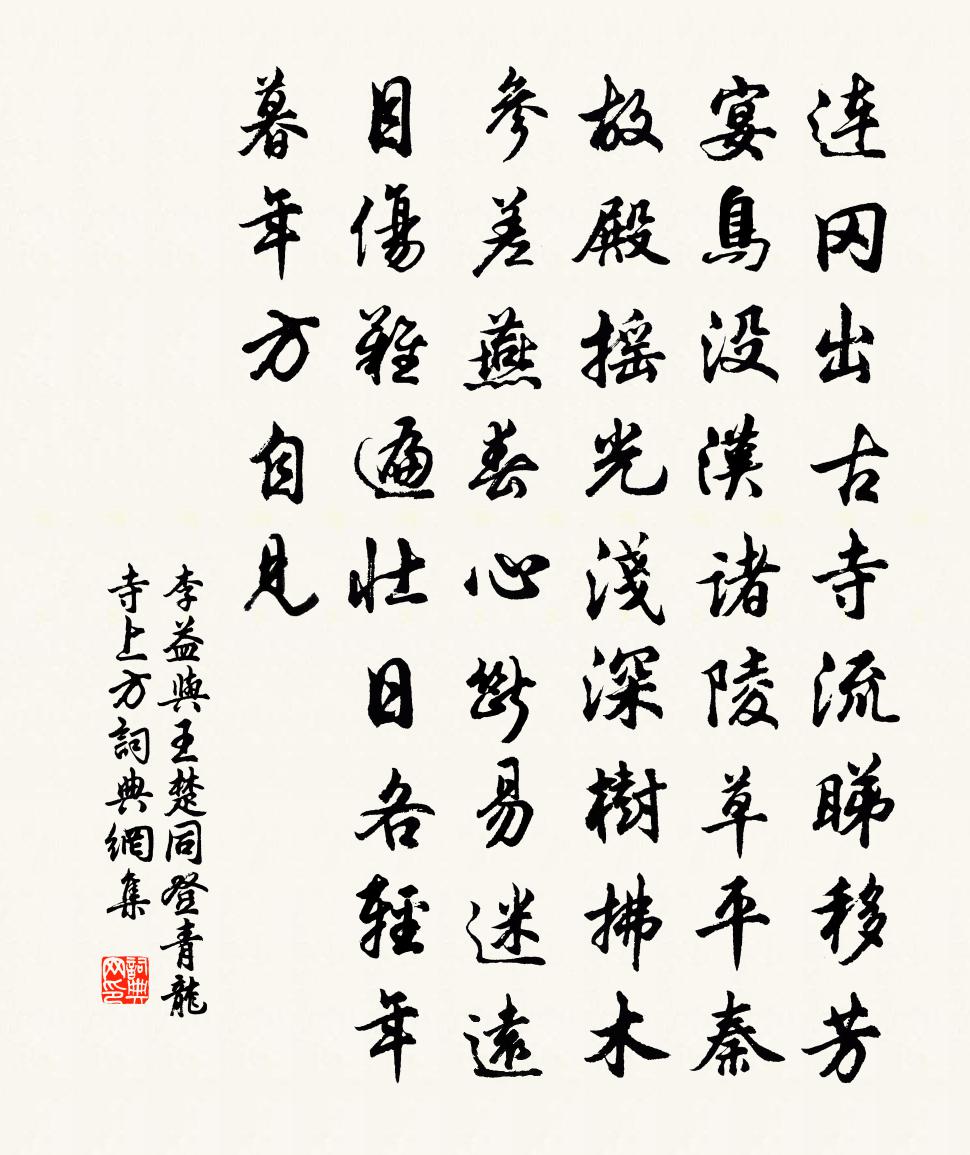 連冈出古寺流睇移芳
宴鳥没漢諸陵草平秦
故殿摇光淺深樹拂木
參差燕春心斷易迷遠
目傷難遍壯日各輕年
暮年方自見
李益與王楚同登青龍
寺上方詞典網集
詞典
网印